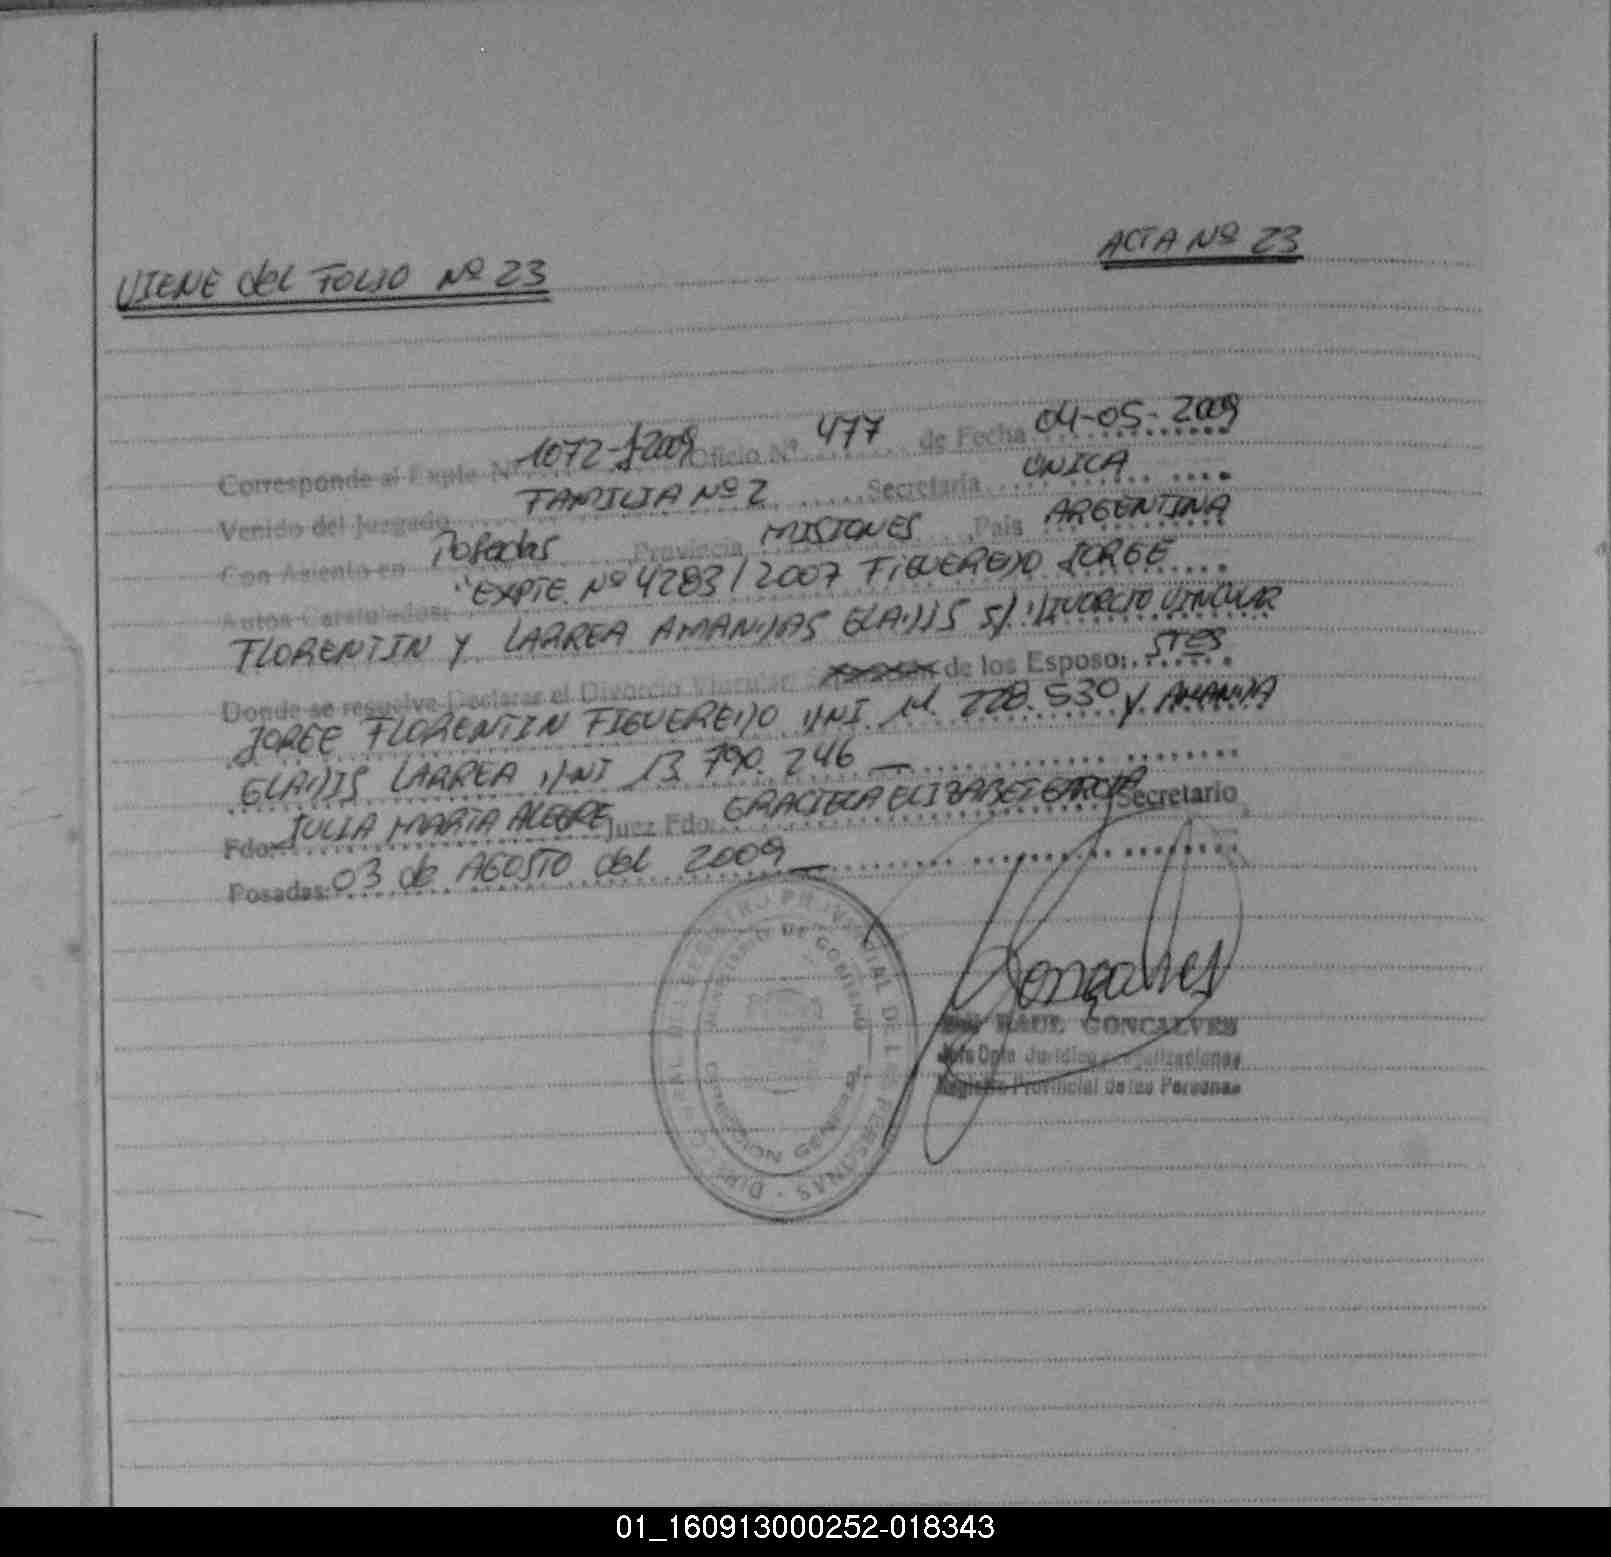 VIENE del FOLIO Nº 23
ACTA Nº 23
Corresponde al Expte Nº 1072-J2009 Oficio Nº 477 de Fecha 04-05-2009
Venido del Juzgado FAMILIA Nº 2 Secretaría ÚNICA
Con Asiento en Posadas Provincia MISIONES País ARGENTINA
Autos Caratulados: "EXPTE. Nº 4283/2007 FIGUEREDO JORGE
FLORENTIN Y LARREA AMANDAS GLADIS S/ DIVORCIO VINCULAR
Donde se resuelve Declarar el Divorcio Vincular de los Esposo: STES
JORGE FLORENTIN FIGUEREDO DNI 11.228.530 Y AMANDA
GLADIS LARREA DNI 13.790.246 —
Fdo: JULIA MARIA ALEGRE Juez Fdo: GRACIELA ELIZABET GARCIA Secretario
Posadas: 03 de AGOSTO del 2009 —
DIRECCION GRAL. DEL REGISTRO PROVINCIAL DE LAS PERSONAS
MINISTERIO DE GOBIERNO
DIRECCION GENERAL
Gonçalves
RAUL GONCALVES
Jefe Dpto Jurídico
Registro Provincial de las Personas
01_160913000252-018343